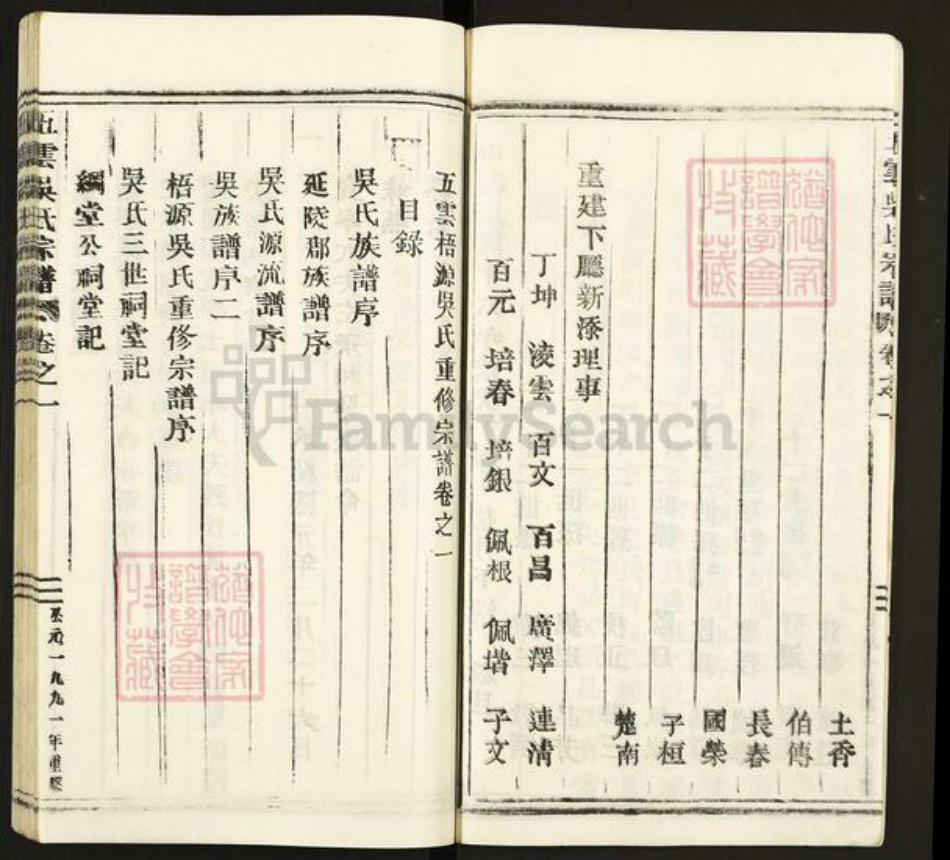 土秀
伯傳
長春
國榮
子桓
楚南
重建下廳新添理事
丁坤 淩雲 百文 百昌 廣澤 連清
百元 培春 培銀 佩根 佩堦 子文
五雲梧源吳氏重修宗譜卷之一
目錄
吳氏族譜序
延陵郡族譜序
吳氏源流譜序
吳族譜序二
梧源吳氏重修宗譜序
吳氏三世祠堂記
綱堂公祠堂記
五雲吳氏宗譜 卷之一
公元一九九一年重修
FamilySearch
譜學會
收藏
譜學會
收藏